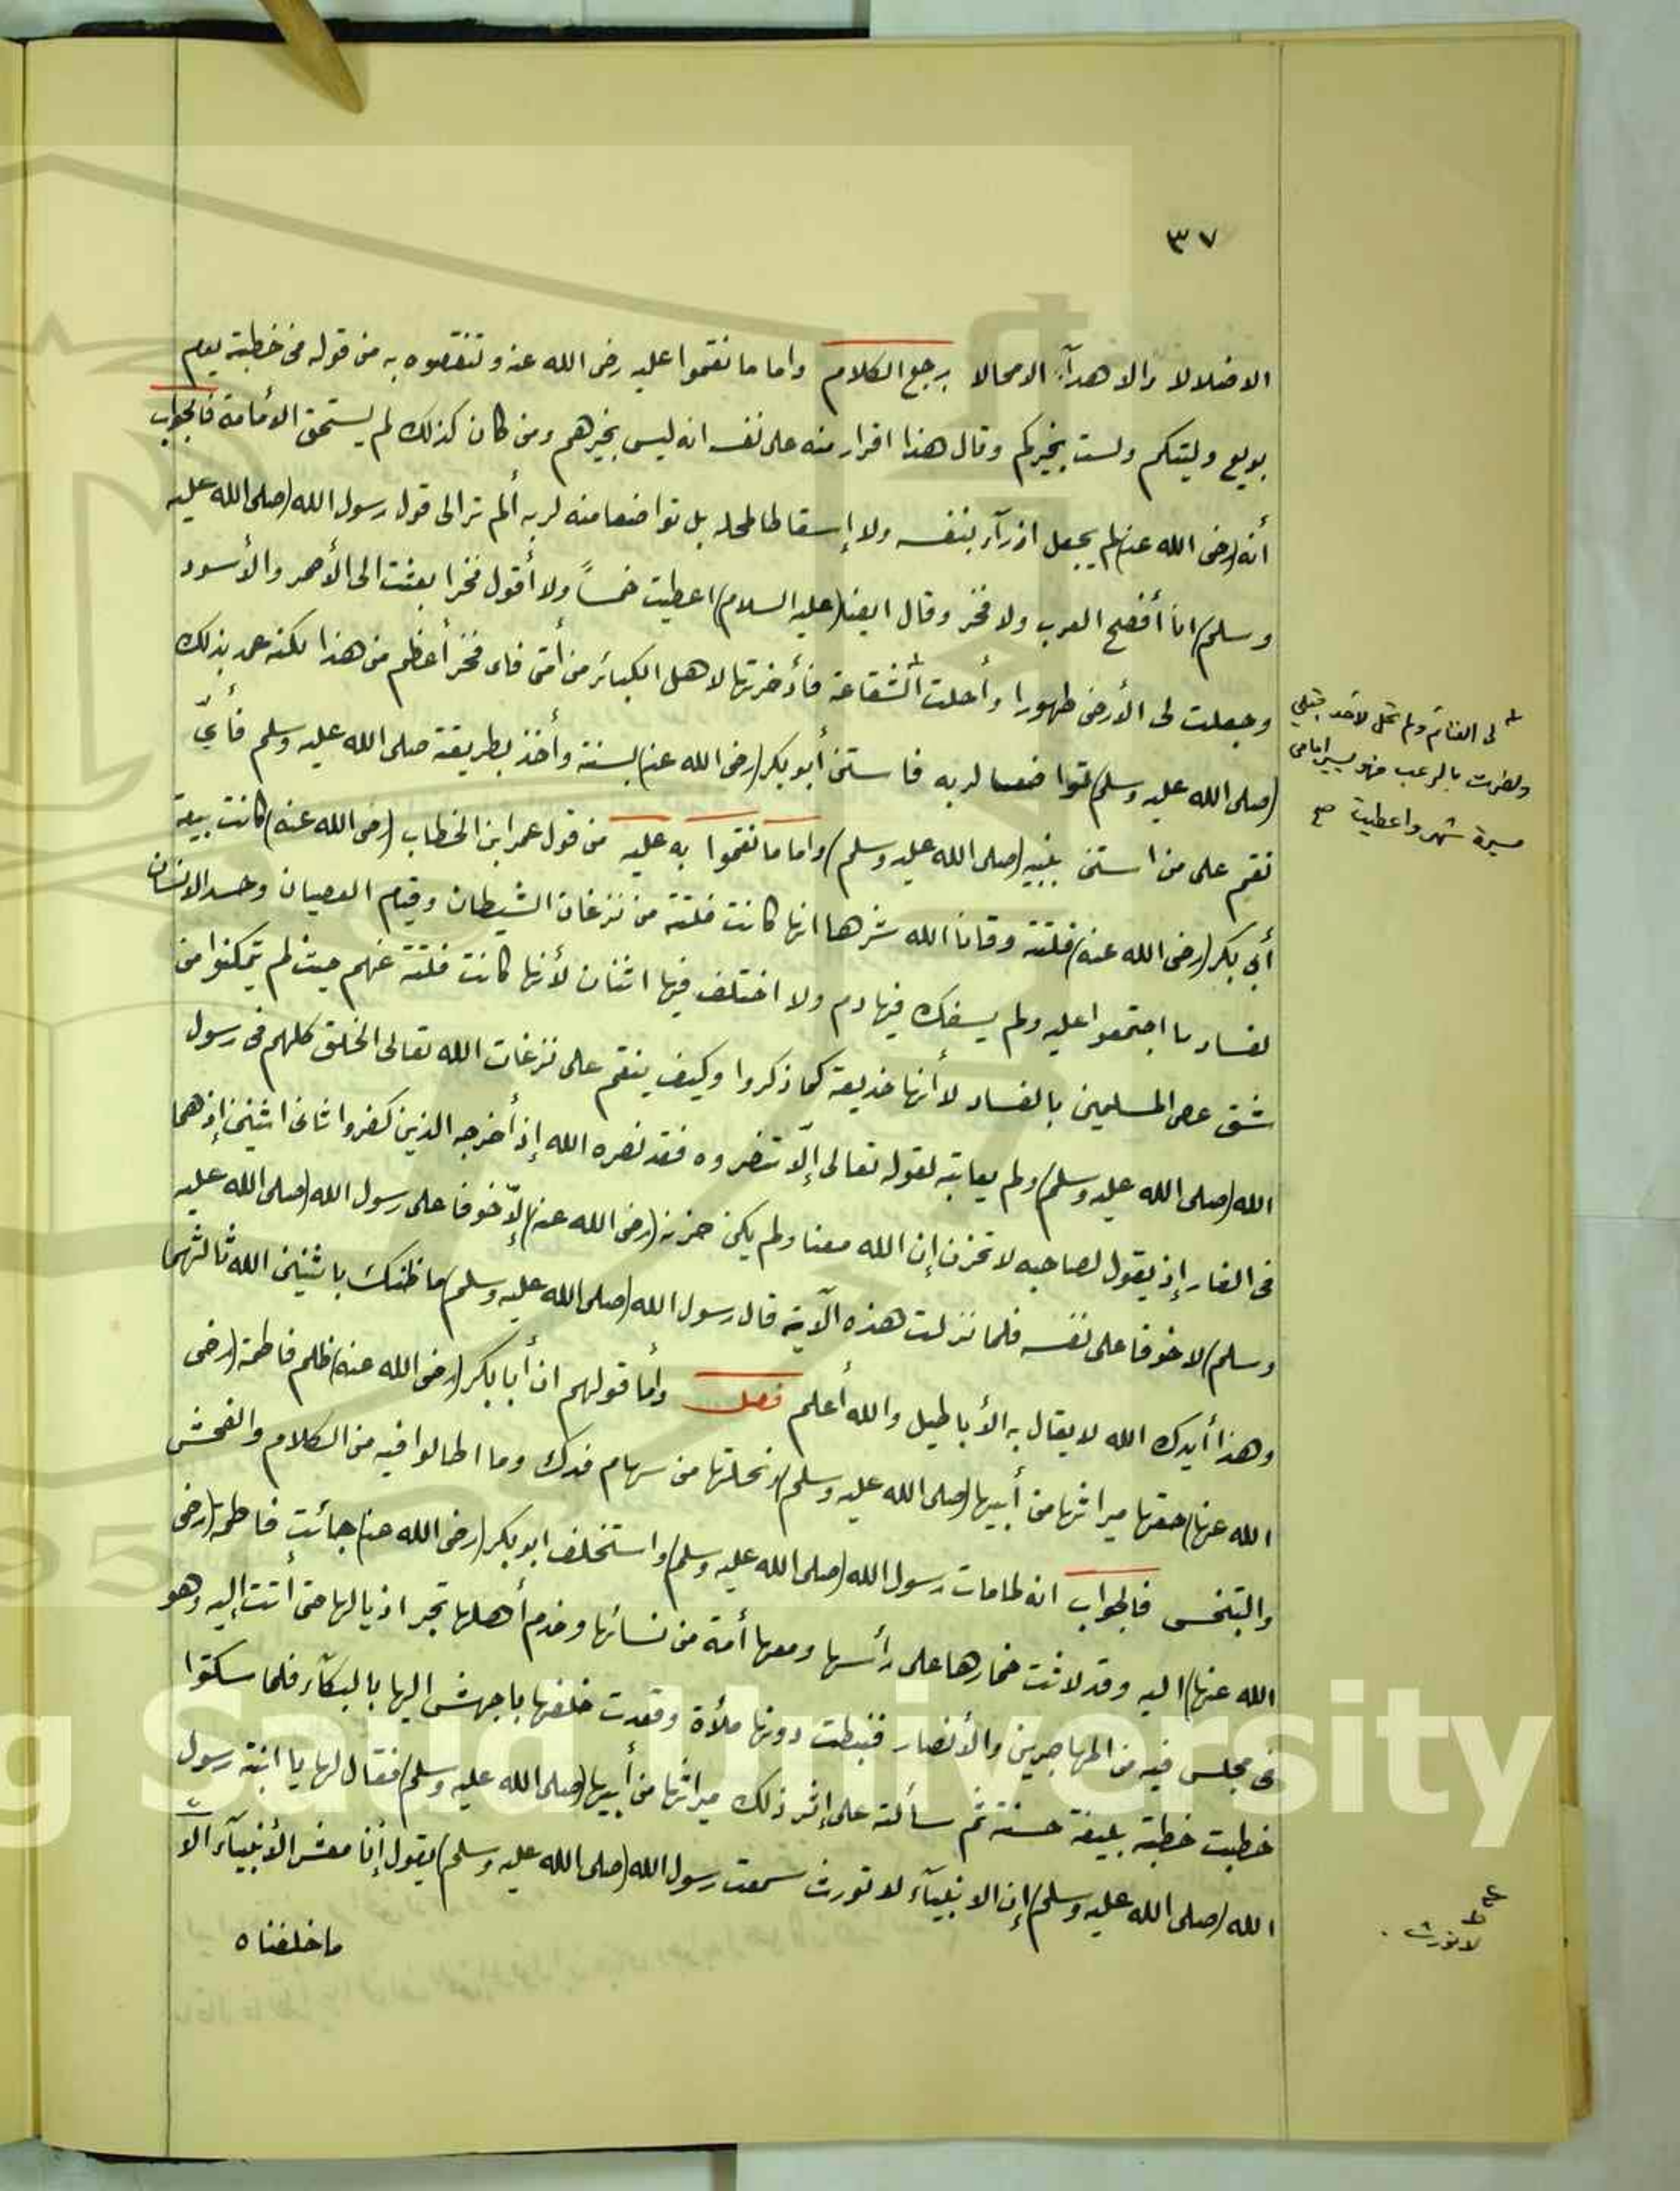 ٣٧
الاضلالا والا هدآء الامحالا رجع الكلام واما ما نقموا عليه رضى الله عنه وتنقصوه به من قوله فى خطبته يوم
بويع وليتكم ولست بخيركم وقال هذا اقرار منه على نفسه انه ليس بخيرهم ومن كان كذلك لم يستحق الأمامة فالجواب
أنه (رضى الله عنه) لم يجعل ازرآء بنفسه ولا إسقاطا لمحله بل تواضعا منه لربه ألم تر الى قول رسول الله (صلى الله عليه
وسلم) انا أفصح العرب ولا فخر وقال ايضا (عليه السلام) اعطيت خمساً ولا أقول فخرا بعثت الى الأحمر والأسود
وجعلت لى الأرض طهورا وأحلت الشفاعة فأدخرتها لاهل الكبائر من أمتى فاى فخر أعظم من هذا لكنه عد بذلك
لى الغنائم ولم تحل لأحد قبلى
ونصرت بالرعب فهو يسير امامى
مسيرة شهر واعطيت صح
(صلى الله عليه وسلم) تواضعا لربه فاستن أبو بكر (رضى الله عنه) بسنته وأخذ بطريقته صلى الله عليه وسلم فأيّ
نقم على من استن بنبيه (صلى الله عليه وسلم) واما ما نقموا به عليه من قول عمر ابن الخطاب (رضى الله عنه) كانت بيعة
أبى بكر (رضى الله عنه) فلتة وقانا الله شرها انها كانت فلتة من نزغات الشيطان وقيام العصيان وحسد الانسان
لفساد ما اجتمعوا عليه ولم يسفك فيها دم ولا اختلف فيها اثنان لأنها كانت فلتة عنهم حيث لم يتمكنوا من
شق عصى المسلمين بالفساد لا أنها خديعة كما ذكروا وكيف ينقم على نزغات الله تعالى الخلق كلهم فى رسول
الله (صلى الله عليه وسلم) ولم يعاتبه لقوله تعالى إلّا تنصروه فقد نصره الله إذ أخرجه الذين كفروا ثانى اثنين إذ هما
فى الغار إذ يقول لصاحبه لا تحزن إن الله معنا ولم يكن حزنه (رضى الله عنه) إلّا خوفا على رسول الله (صلى الله عليه
وسلم) لا خوفا على نفسه فلما نزلت هذه الآية قال رسول الله (صلى الله عليه وسلم) ما ظنك باثنين الله ثالثهما
وهذا أيدك الله لا يقال به الأباطيل والله أعلم فصل وأما قولهم ان أبا بكر (رضى الله عنه) ظلم فاطمة (رضى
الله عنها) حقها ميراثها من أبيها (صلى الله عليه وسلم) ونحلتها من سهام فدك وما اطالوا فيه من الكلام والفحش
والتبخس فالجواب انه لما مات رسول الله (صلى الله عليه وسلم) واستخلف ابو بكر (رضى الله عنه) جائت فاطمة (رضى
الله عنها) اليه وقد لاثت خمارها على رأسها ومعها أمة من نسائها وخدم أهلها تجر اذيالها حتى أتت إليه وهو
فى مجلس فيه من المهاجرين والأنصار فنيطت دونها ملأة وقعدت خلفها باجهش اليها بالبكآء فلما سكتوا
خطبت خطبة بليغة حسنة ثم سألته على إثر ذلك ميراثها من أبيها (صلى الله عليه وسلم) فقال لها يا ابنة رسول
الله (صلى الله عليه وسلم) إن الانبيآء لا تورث سمعت رسول الله (صلى الله عليه وسلم) يقول إنا معشر الأنبيآء الا
لا نورث
ما خلفناه
King Saud University